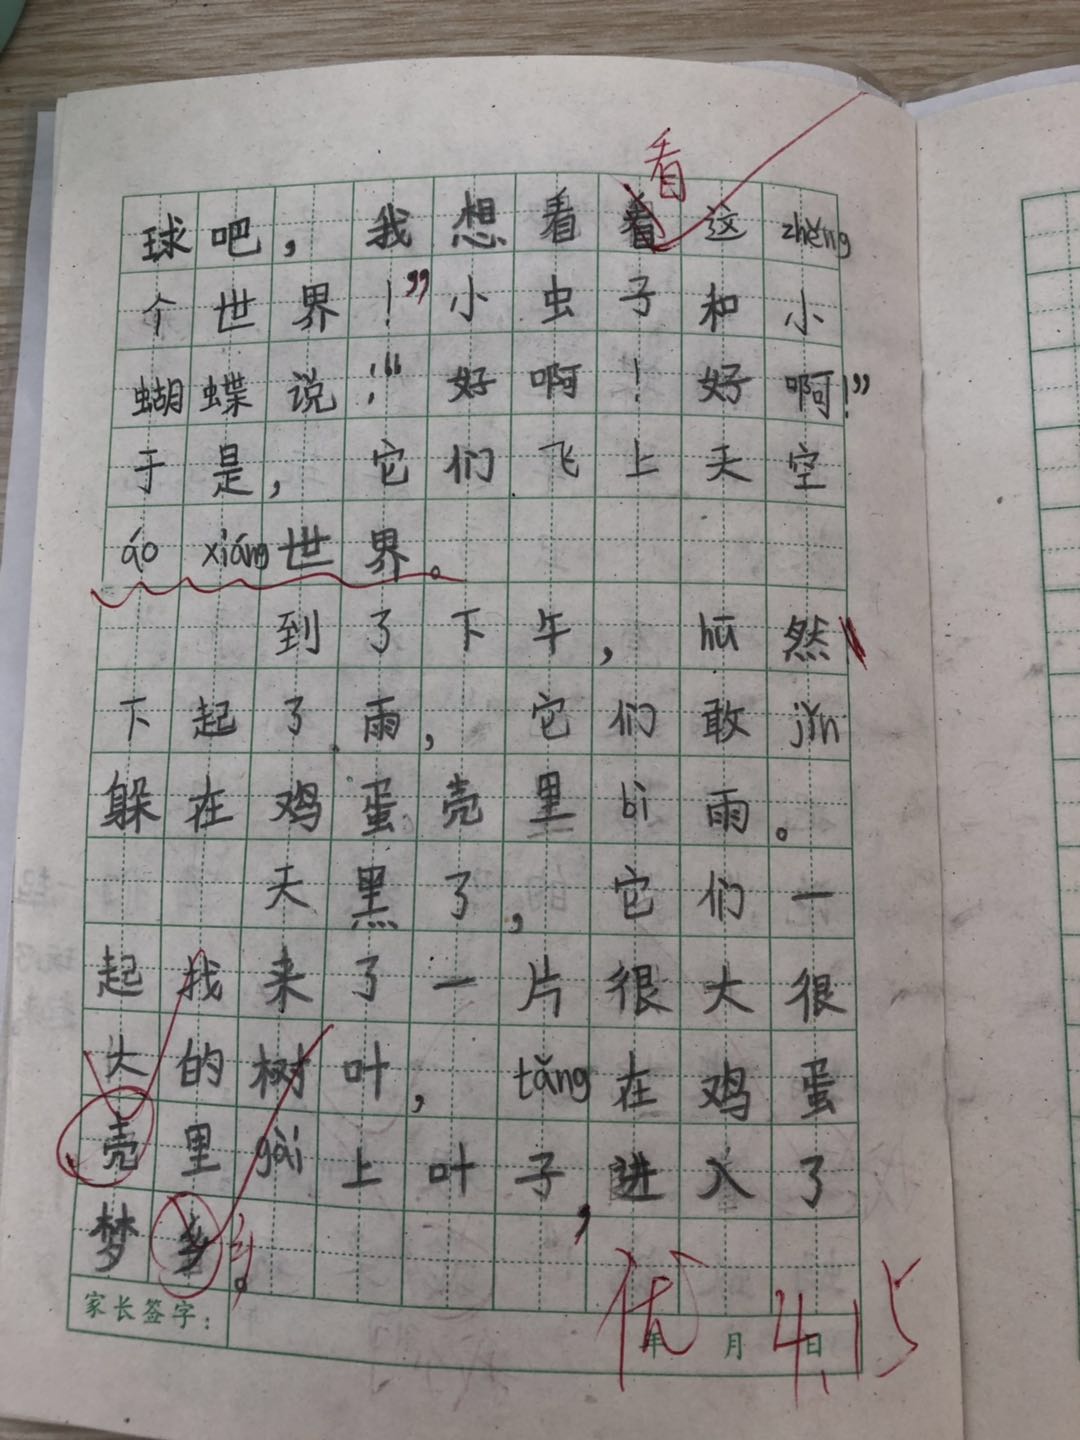 看
球吧，我想看着这zhěng
个世界！”小虫子和小
蝴蝶说：“好啊！好啊！”
于是，它们飞上天空
áo xiáng世界。
到了下午，hū然
下起了雨，它们敢jǐn
躲在鸡蛋壳里bì雨。
天黑了，它们一
起找来了一片很大很
大的树叶，tǎng在鸡蛋
壳里gài上叶子，进入了
梦乡。
家长签字：
年 月 日
优 4.15